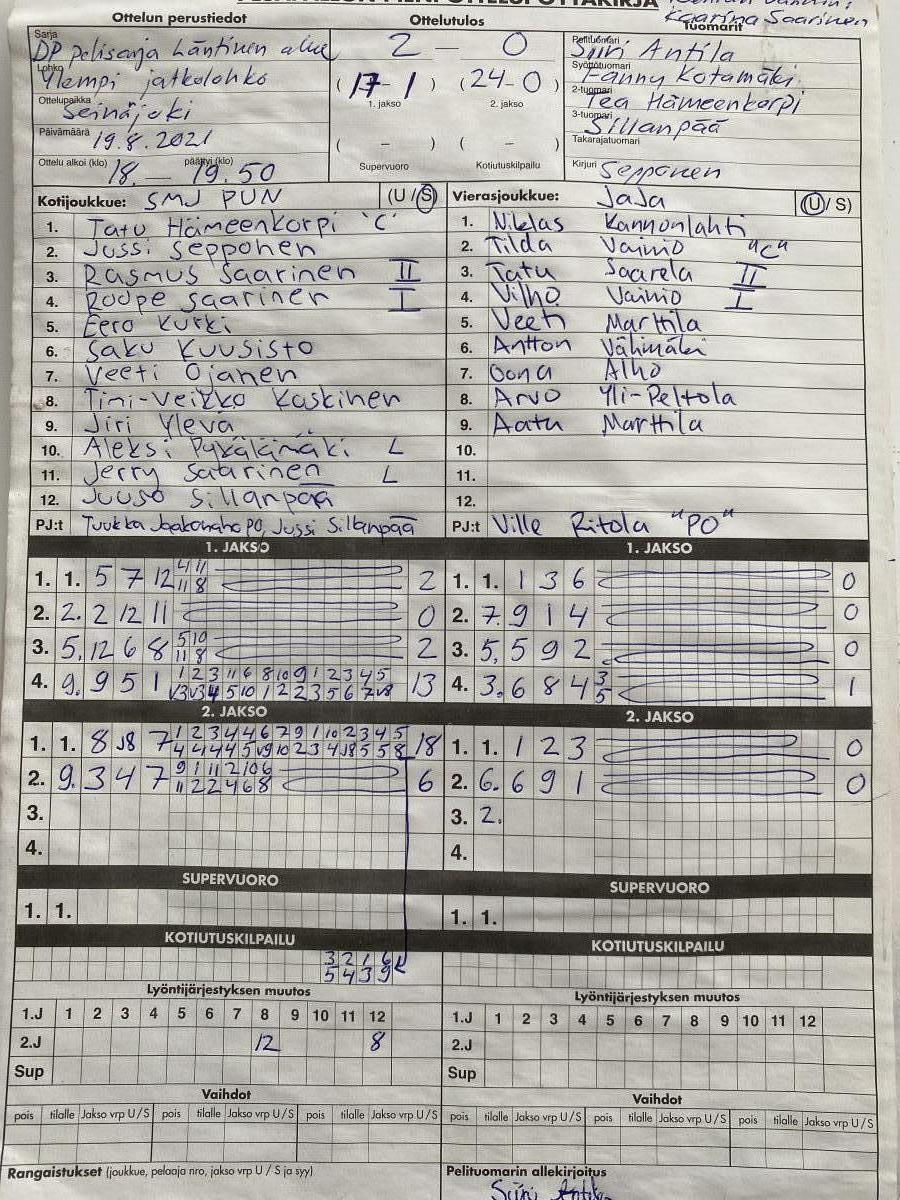 PESÄPALLON PIENI OTTELUPÖYTÄKIRJA
Kaarina Saarinen
Ottelun perustiedot
Ottelutulos
Tuomarit
Sarja
DP pelisarja Läntinen alue
Lohko
Ylempi jatkolohko
Ottelupaikka
Seinäjoki
Päivämäärä
19.8.2021
Ottelu alkoi (klo) 18.— päättyi (klo) 19.50
2 – 0
(17-1) (24-0)
1. jakso 2. jakso
( – ) ( – )
Supervuoro Kotiutuskilpailu
Pelituomari
Siiri Antila
Syöttötuomari
Fanny Kotamäki
2-tuomari
Tea Hämeenkorpi
3-tuomari
Sillanpää
Takarajatuomari
Kirjuri Sepponen
Kotijoukkue: SMJ PUN (U/S)
1. Tatu Hämeenkorpi "C"
2. Jussi Sepponen
3. Rasmus Saarinen II
4. Roope Saarinen I
5. Eero Kurki
6. Saku Kuusisto
7. Veeti Ojanen
8. Timi-Veikko Kaskinen
9. Jiri Yleva
10. Aleksi Pyxälämäki L
11. Jerry Saarinen L
12. Juuso Sillanpää
PJ:t Tuukka Jaakonaho PO, Jussi Sillanpää
Vierasjoukkue: JaJa (U/S)
1. Niklas Kannonlahti
2. Tilda Vainio "C"
3. Tatu Saarela II
4. Vilho Vainio I
5. Veeti Marttila
6. Antton Vähimäki
7. Oona Alho
8. Arvo Yli-Peltola
9. Aatu Marttila
10.
11.
12.
PJ:t Ville Ritola "PO"
1. JAKSO
1. 1. 5 7 12 4 11 2
11 8
2. 2. 2 12 11 0
3. 5. 12 6 8 5 10 2
11 8
4. 9. 9 5 1 1 2 3 11 6 8 10 9 1 2 3 4 5 13
V3 V3 4 5 10 1 2 2 3 5 6 7 V8
1. JAKSO
1. 1. 1 3 6 0
2. 7. 9 1 4 0
3. 5. 5 9 2 0
4. 3. 6 8 4 3 1
5
2. JAKSO
1. 1. 8 J8 7 1 2 3 4 4 6 7 9 1 10 2 3 4 5 18
4 4 4 4 5 V9 10 2 3 4 J8 5 5 8
2. 9. 3 4 7 9 1 11 2 10 6 6
11 2 2 4 6 8
3.
4.
2. JAKSO
1. 1. 1 2 3 0
2. 6. 6 9 1 0
3. 2.
4.
SUPERVUORO
1. 1.
SUPERVUORO
1. 1.
KOTIUTUSKILPAILU
3 2 1 6
5 4 3 9
KOTIUTUSKILPAILU
Lyöntijärjestyksen muutos
1.J 1 2 3 4 5 6 7 8 9 10 11 12
2.J 12 8
Sup
Lyöntijärjestyksen muutos
1.J 1 2 3 4 5 6 7 8 9 10 11 12
2.J
Sup
Vaihdot
pois tilalle Jakso vrp U/S pois tilalle Jakso vrp U/S pois tilalle Jakso vrp U/S
Vaihdot
pois tilalle Jakso vrp U/S pois tilalle Jakso vrp U/S pois tilalle Jakso vrp U/S
Rangaistukset (joukkue, pelaaja nro, jakso vrp U / S ja syy)
Pelituomarin allekirjoitus
Siiri Antila